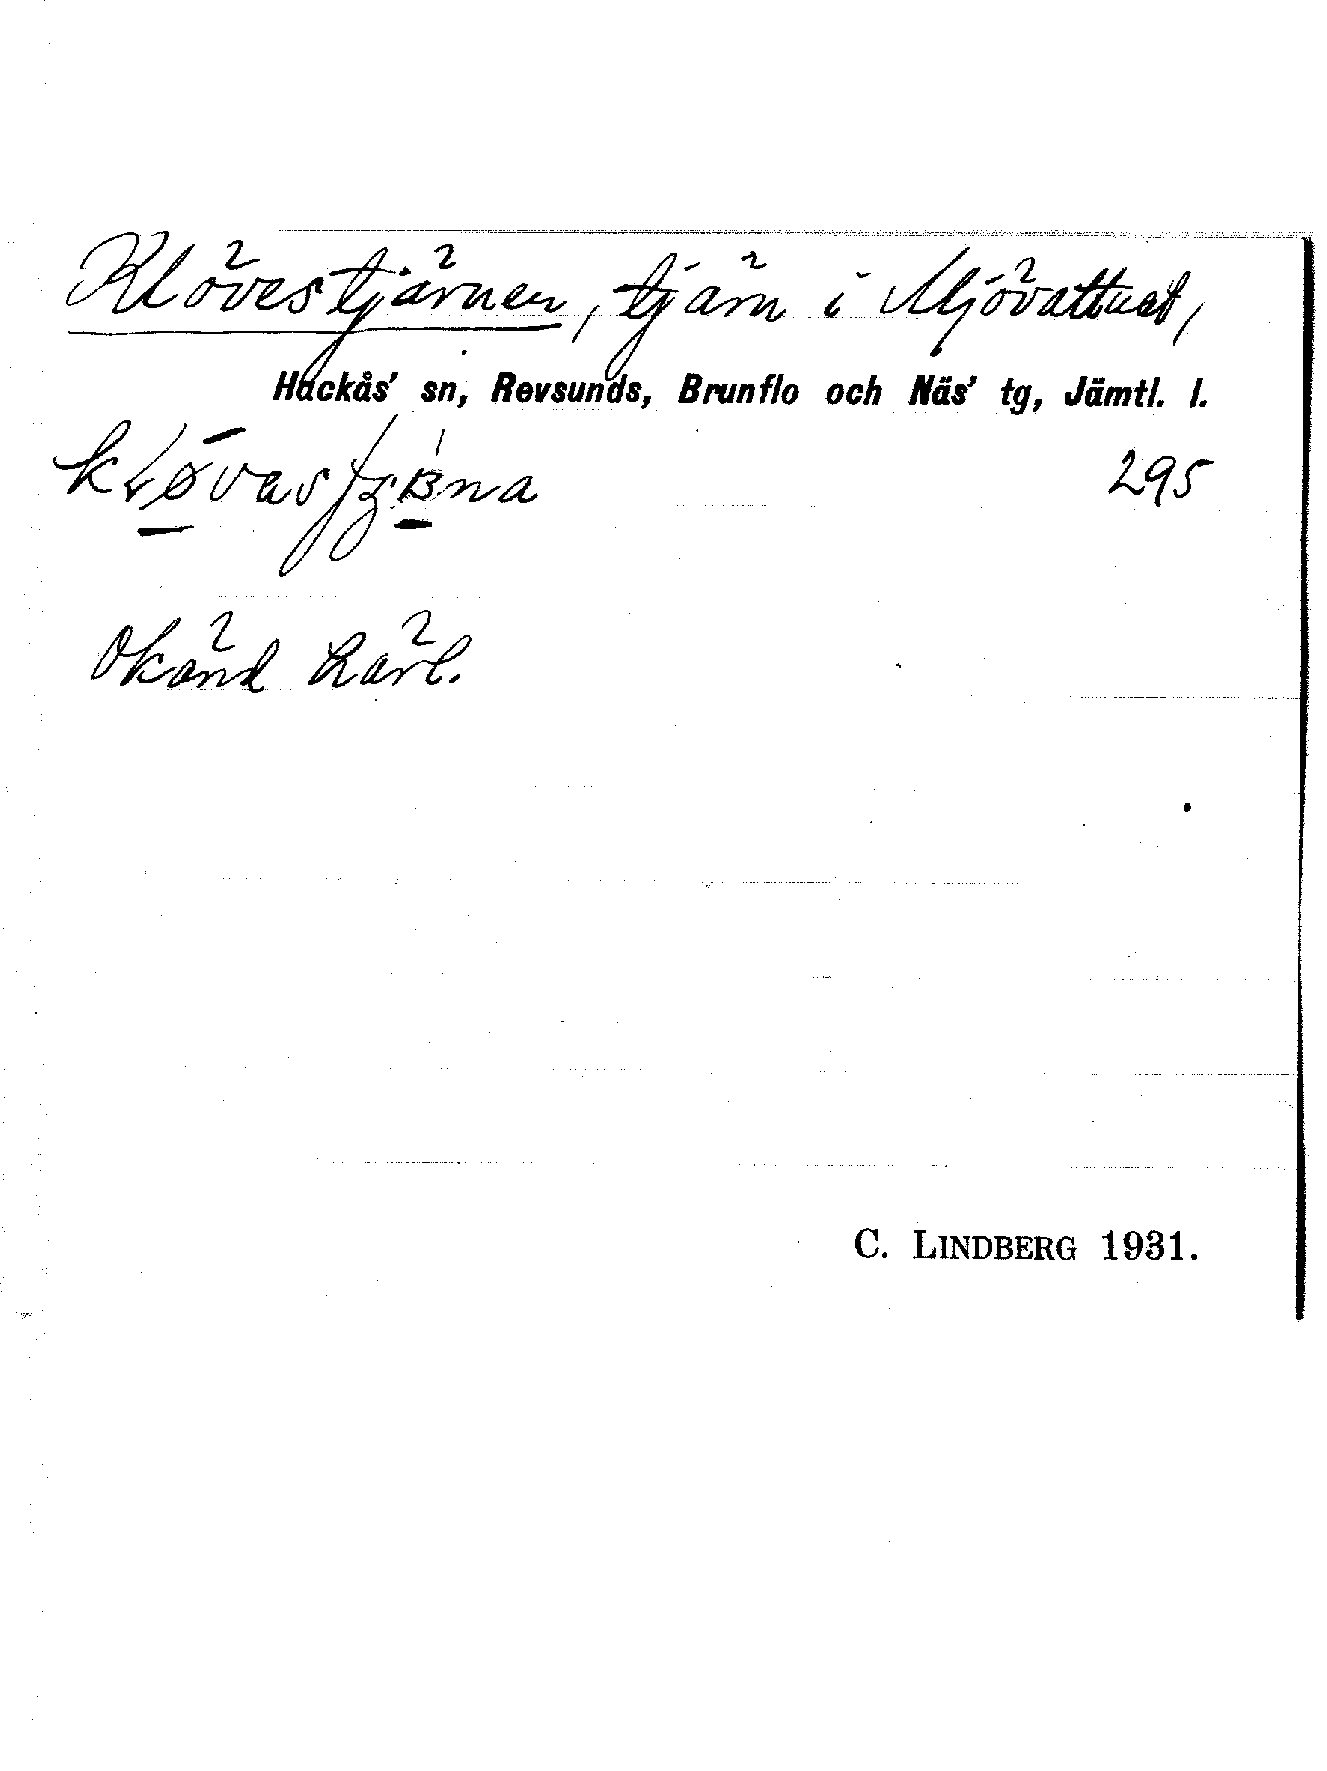 Klövestjärnen, tjärn i Mjövattnet,
Hackås' sn, Revsunds, Brunflo och Näs' tg, Jämtl. l.
295
Okänd härl.
C. LINDBERG 1931.